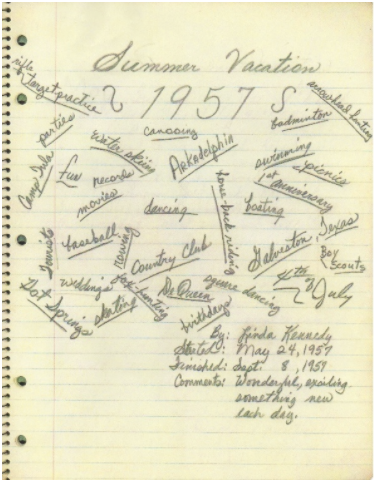 Summer Vacation
1957
rifle & target practice
arrowhead hunting
parties
canoeing
badminton
Camp Ida
Fun
water skiing
records
movies
Arkadelphia
swimming
picnics
1st anniversary
dancing
horse-back riding
boating
Tourists
baseball
rowing
Country Club
Galveston, Texas
Boy Scouts
Hot Springs
weddings
skating
fox hunting
De Queen
square dancing
4th of July
birthdays
By: Linda Kennedy
Started: May 24, 1957
Finished: Sept. 8, 1957
Comments: Wonderful, exciting
something new
each day.